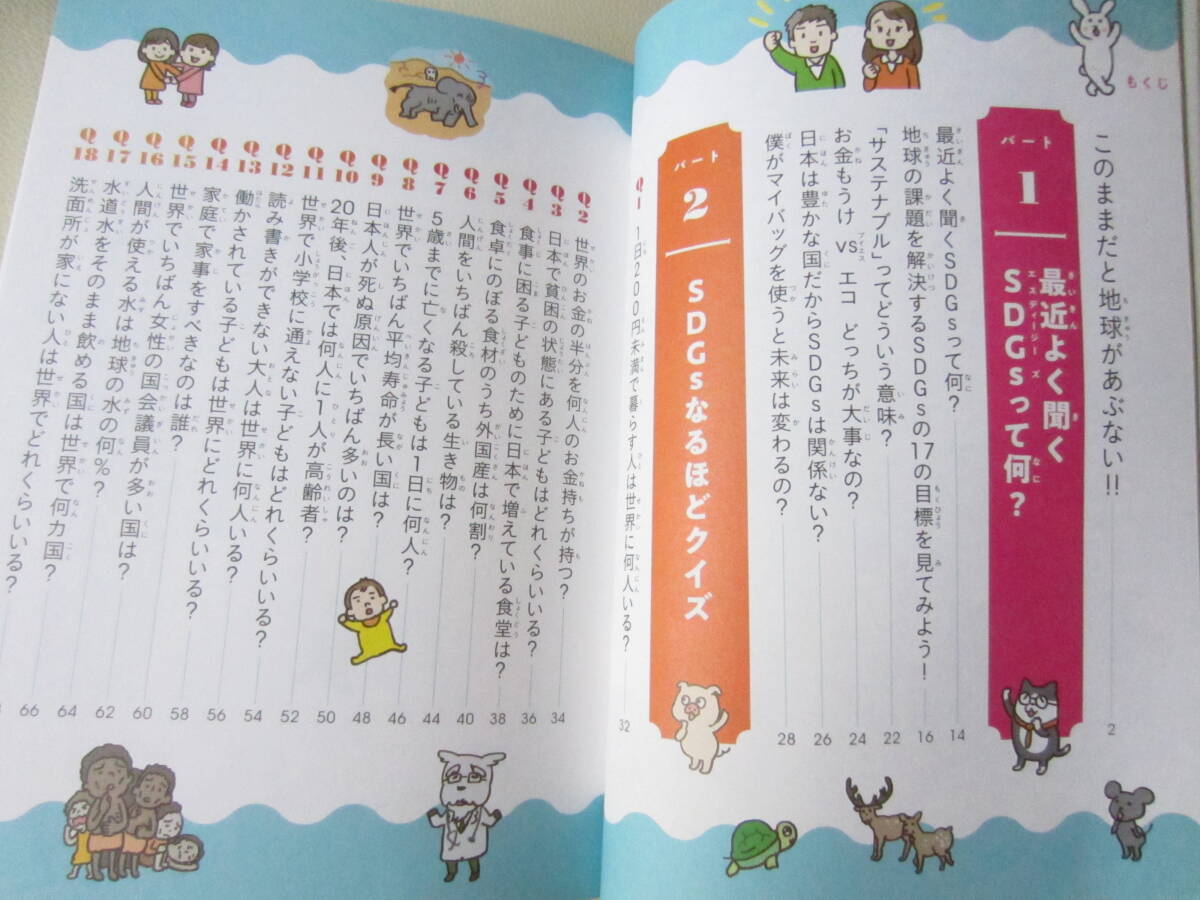 もくじ
このままだと地球があぶない!! 2
パート 1 最近よく聞く
SDGsって何?
最近よく聞くSDGsって何? 14
地球の課題を解決するSDGsの17の目標を見てみよう! 16
「サステナブル」ってどういう意味? 22
お金もうけ VS エコ どっちが大事なの? 24
日本は豊かな国だからSDGsは関係ない? 26
僕がマイバッグを使うと未来は変わるの? 28
パート 2 SDGsなるほどクイズ
Q1 1日200円未満で暮らす人は世界に何人いる? 32
Q2 世界のお金の半分を何人のお金持ちが持つ? 34
Q3 日本で貧困の状態にある子どもはどれくらいいる? 36
Q4 食事に困る子どものために日本で増えている食堂は? 38
Q5 食卓にのぼる食材のうち外国産は何割? 40
Q6 人間をいちばん殺している生き物は? 44
Q7 5歳までに亡くなる子どもは1日に何人? 46
Q8 世界でいちばん平均寿命が長い国は? 48
Q9 日本人が死ぬ原因でいちばん多いのは? 50
Q10 20年後、日本では何人に1人が高齢者? 52
Q11 世界で小学校に通えない子どもはどれくらいいる? 54
Q12 読み書きができない大人は世界に何人いる? 56
Q13 働かされている子どもは世界にどれくらいいる? 58
Q14 家庭で家事をすべきなのは誰? 60
Q15 世界でいちばん女性の国会議員が多い国は? 62
Q16 人間が使える水は地球の水の何%? 64
Q17 水道水をそのまま飲める国は世界で何カ国? 66
Q18 洗面所が家にない人は世界でどれくらいいる?